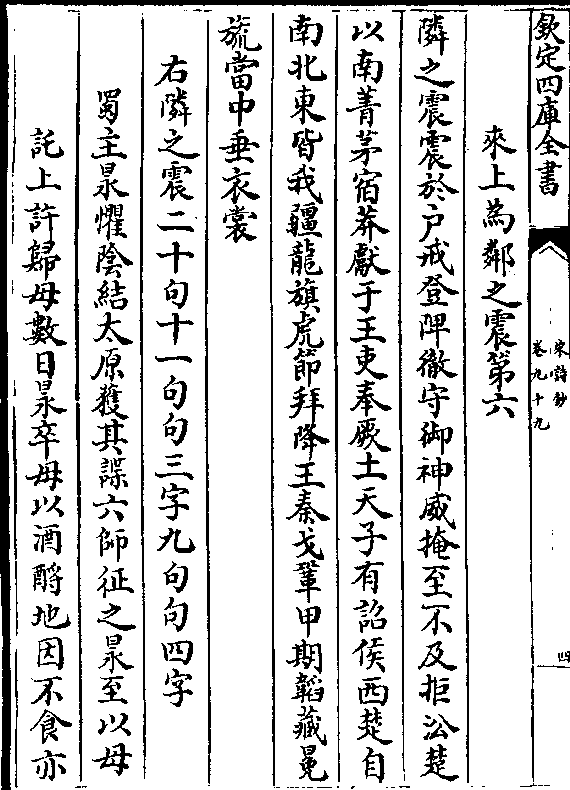 欽定四庫全書
宋詩鈔
卷九十九
四
來上為鄰之震第六
隣之震震於户戒登陴徹守御神威掩至不及拒泌楚
以南菁茅宿莽獻于王吏奉厥土天子有詔侯西楚自
南北東皆我疆龍旗虎節拜降王秦戈鞏甲期韜藏冕
旒當中垂衣裳
右隣之震二十句十一句句三字九句句四字
蜀主昶懼陰結太原獲其諜六師征之昶至以母
託上許歸母數日昶卒母以酒酹地因不食亦